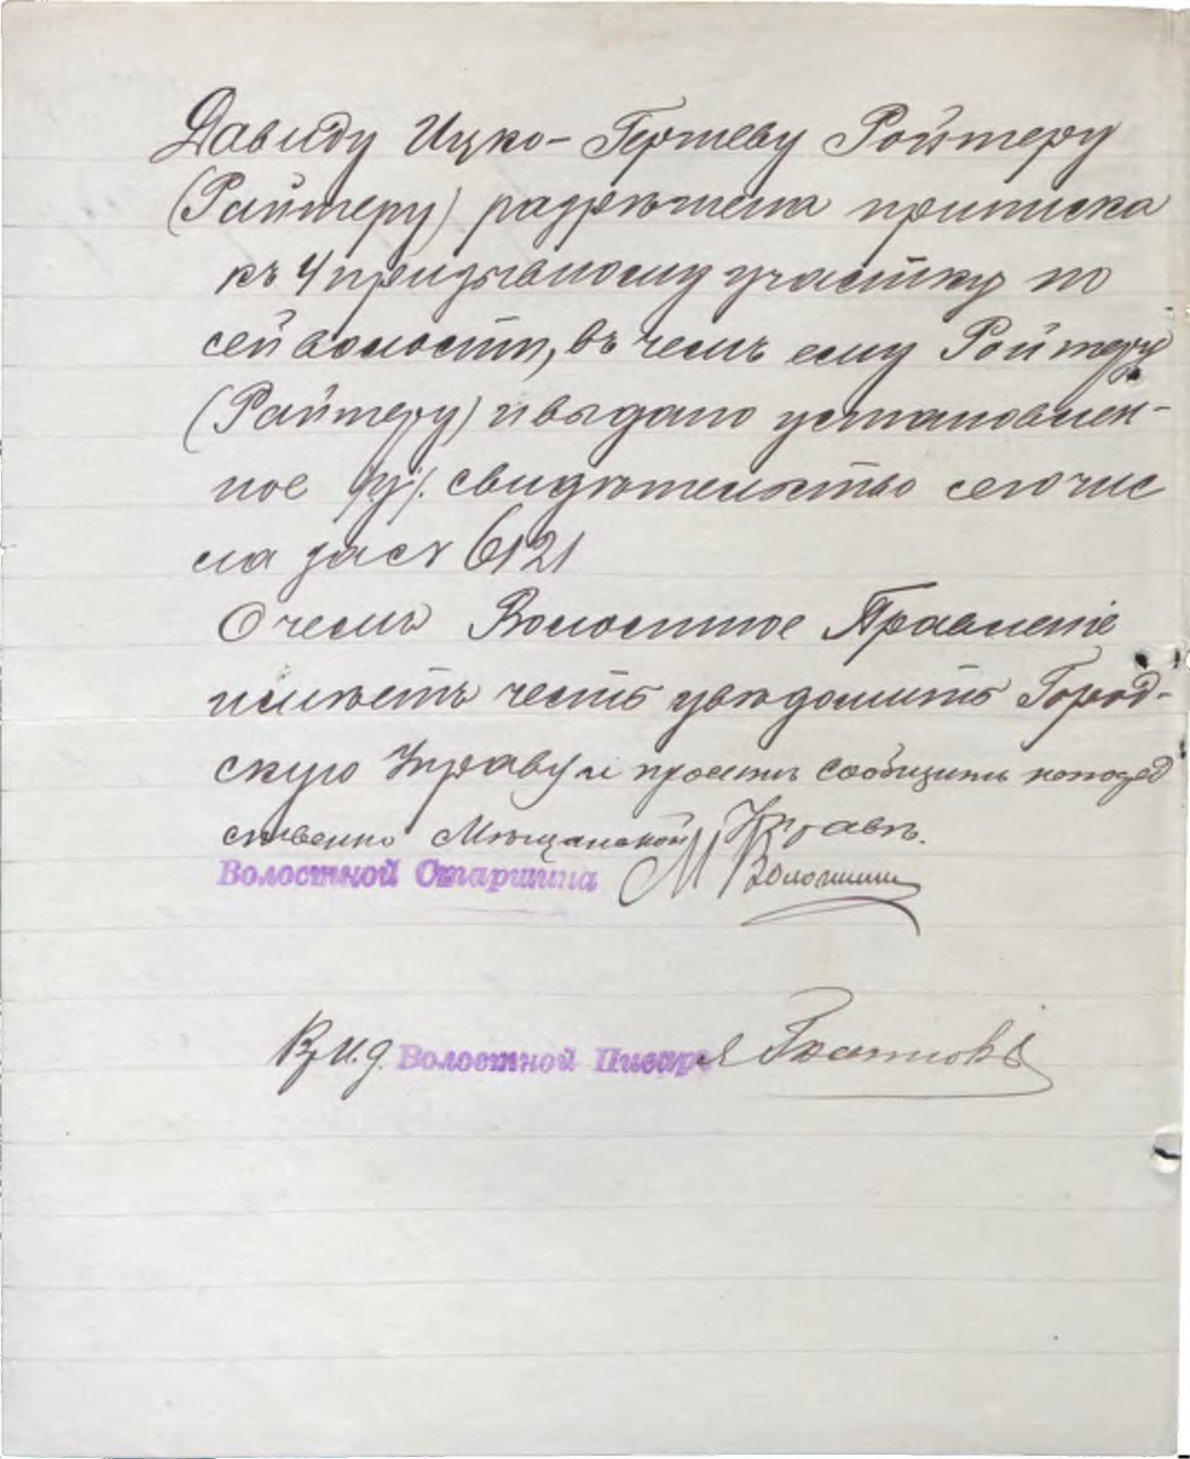 Давиду Ицко-Гершеву Ройтеру
(Райтеру) разрѣшена приписка
къ 4 призывному участку по
сей волости, въ чемъ ему Ройтеру
(Райтеру) и выдано установлен-
ное свидѣтельство сего чис
ла за № 6121
О чемъ Волостное Правленіе
имѣетъ честь увѣдомить Город-
скую Управу и проситъ сообщить непосред
ственно Мѣщанской Управѣ.
Волостной Старшина М Волошинъ
Вр.И.д. Волостной Писарь